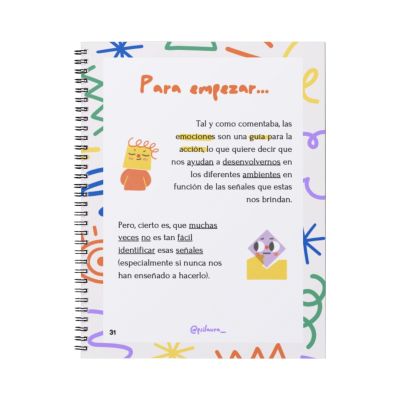 Para empezar...
Tal y como comentaba, las
emociones son una guía para la
acción, lo que quiere decir que
nos ayudan a desenvolvernos en
los diferentes ambientes en
función de las señales que estas
nos brindan.
Pero, cierto es, que muchas
veces no es tan fácil
identificar esas señales
(especialmente si nunca nos
han enseñado a hacerlo).
31
@psilaura_